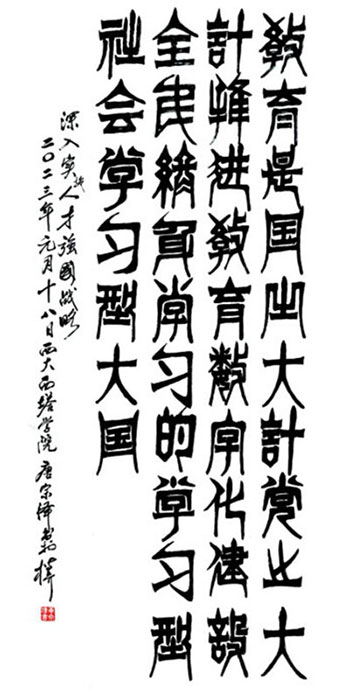 教育是国之大計党之大
計推进教育数字化建設
全民終身学习的学习型
社会学习型大国
深入实施人才強國战略
二〇二三年元月十八日西大西塔学院唐宗泽